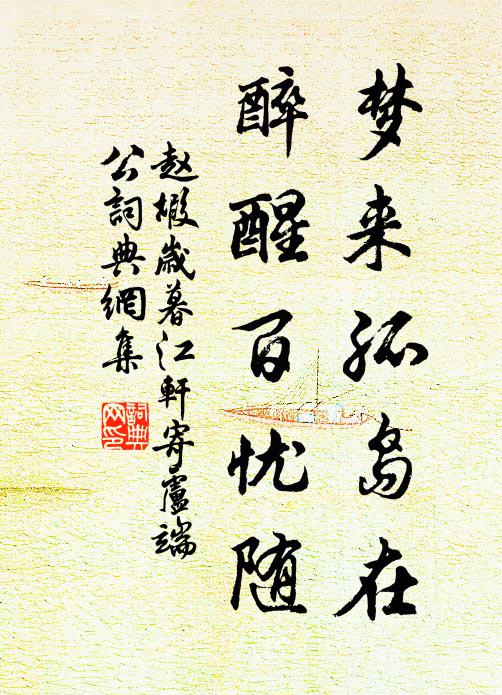 梦来孤岛在
醉醒百忧随
赵嘏岁暮江轩寄盧端
公詞典網集
詞典网印